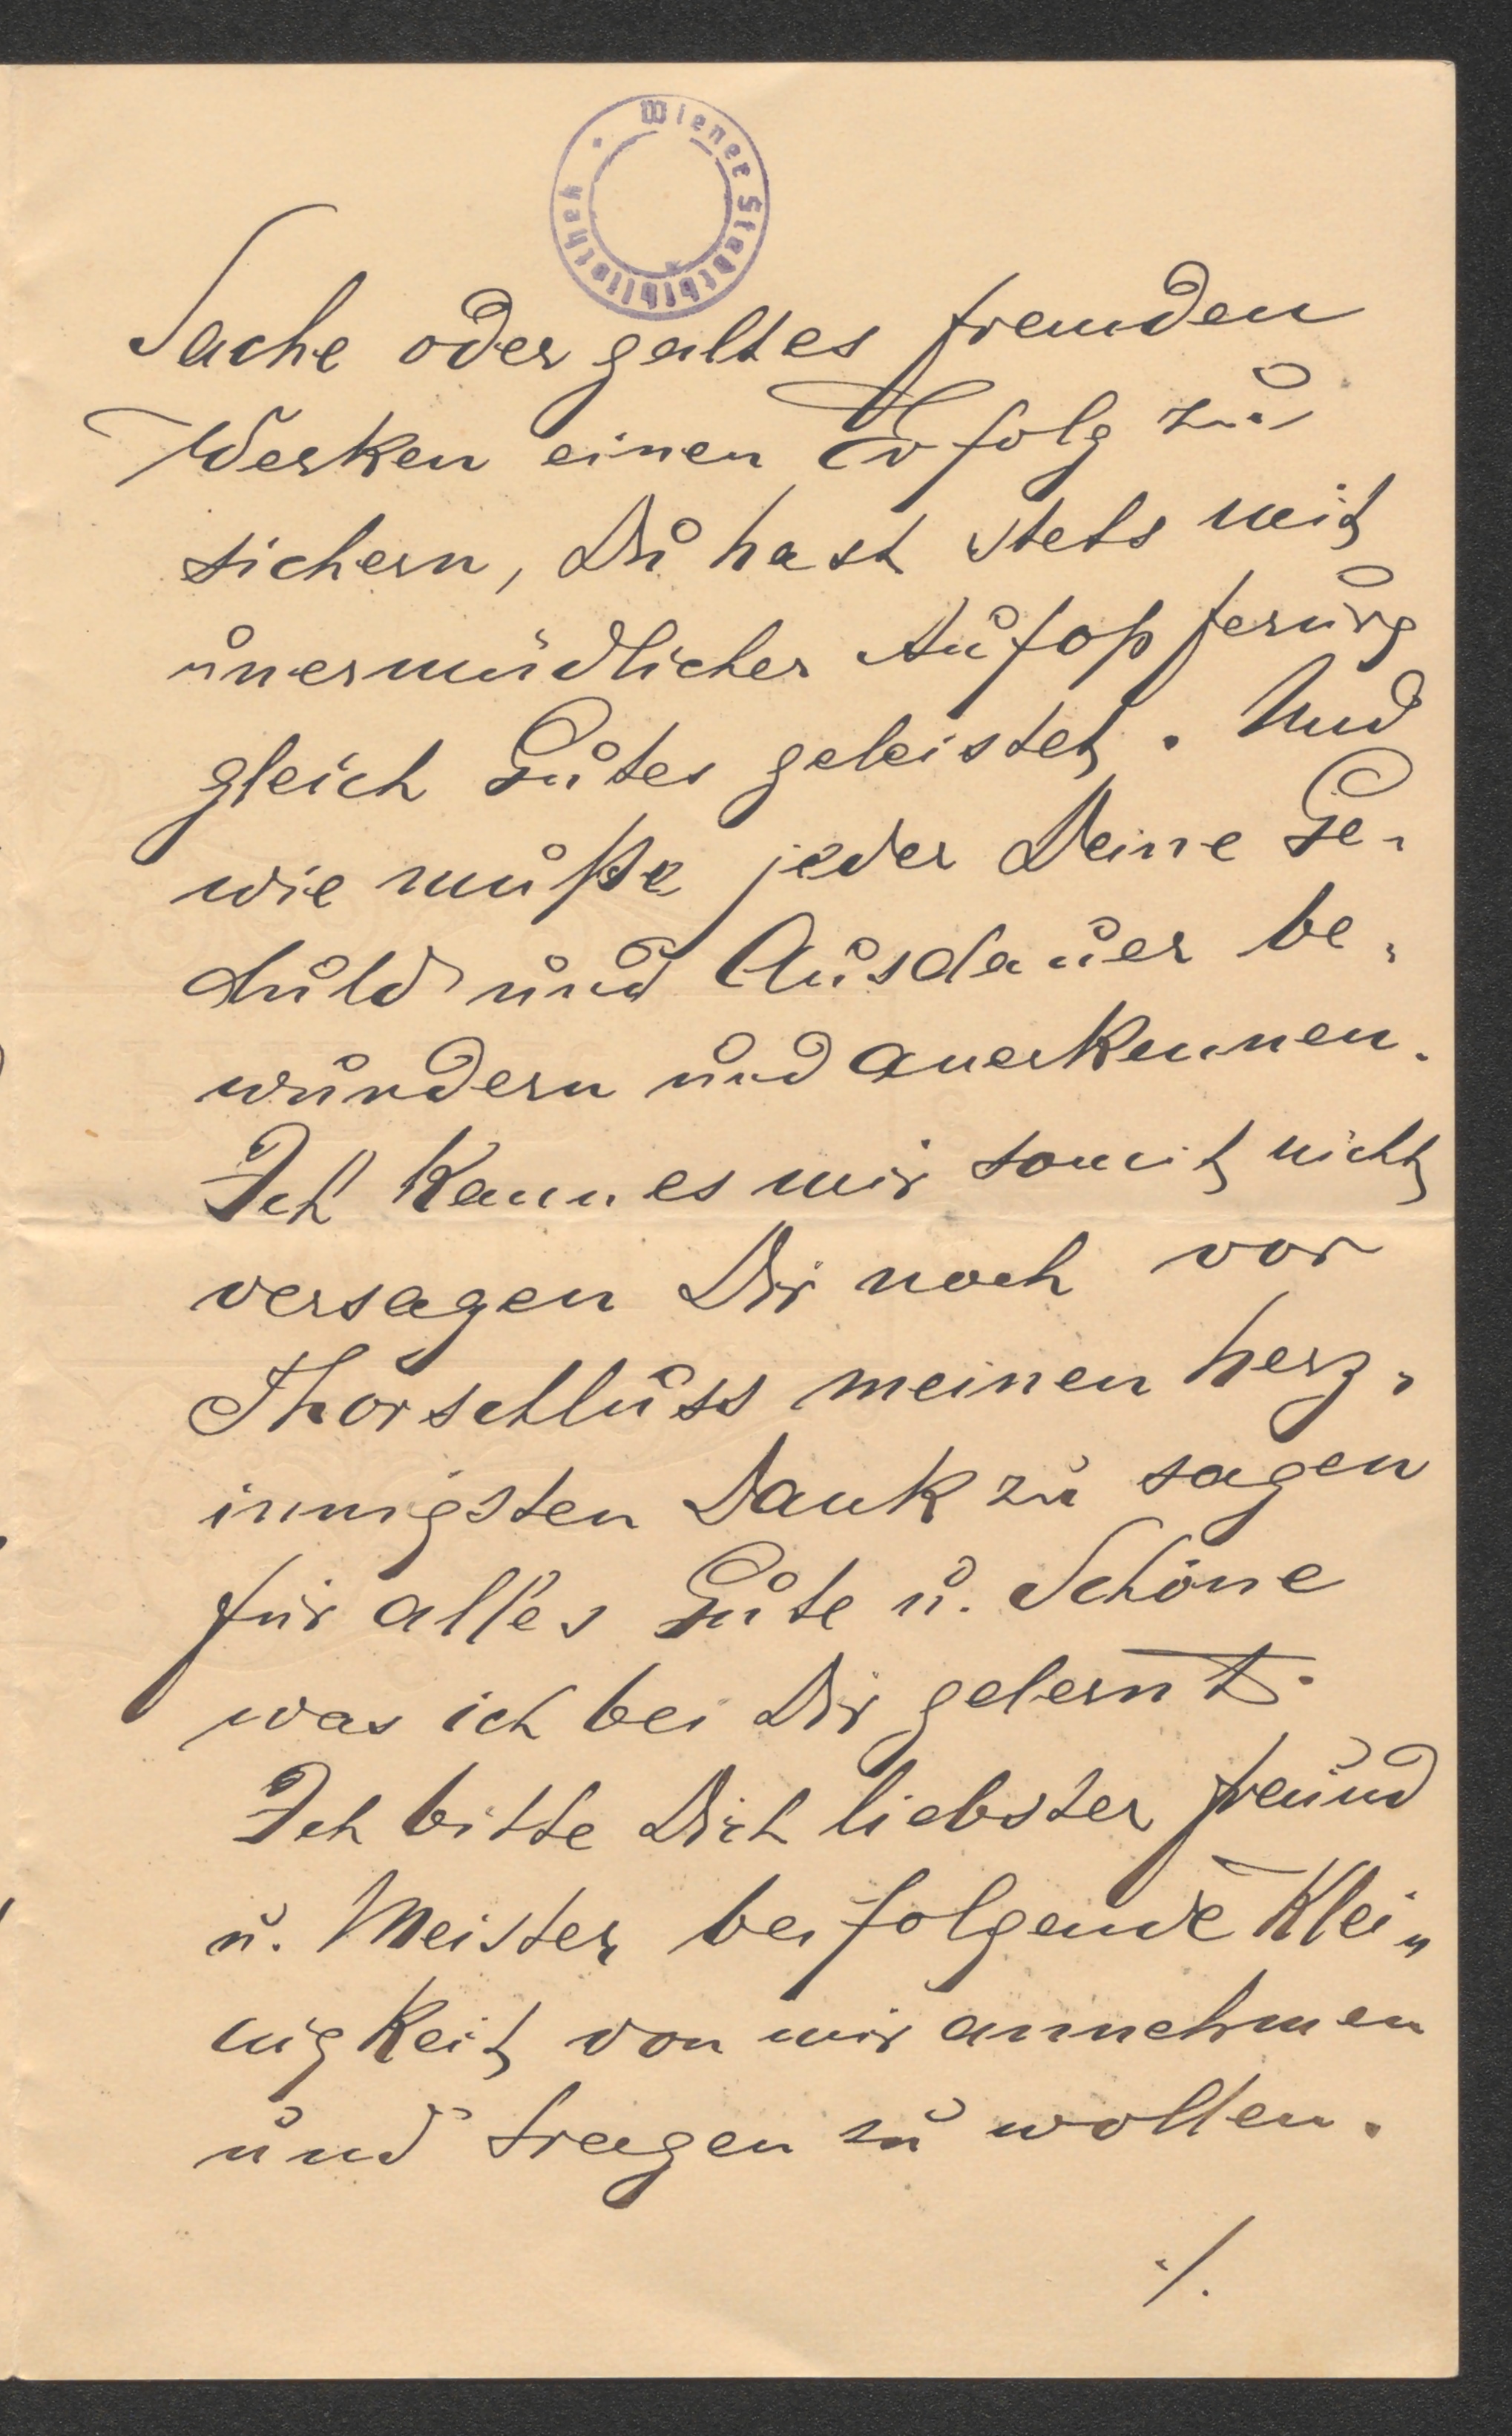 Wiener Stadtbibliothek
Sache oder galt es fremden
Werken einen Erfolg zu
sichern, Du hast stets mit
unermüdlicher Aufopferung
gleich Gutes geleistet. Und
wie mußte jeder Deine Ge-
duld und Ausdauer be-
wundern und anerkennen.
Ich kann es mir somit nicht
versagen Dir noch vor
Thorschluss meinen herz-
innigsten Dank zu sagen
für alles Gute u. Schöne
was ich bei Dir gelernt.
Ich bitte Dich liebster Freund
u. Meister beifolgende Klei„
nigkeit von mir annehmen
und tragen zu wollen.
./.